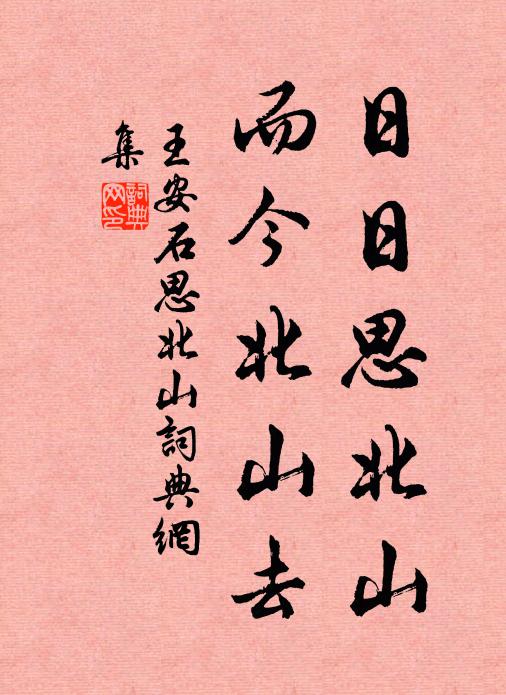 日日思北山
而今北山去
王安石思北山詞典網
集
詞典
网印